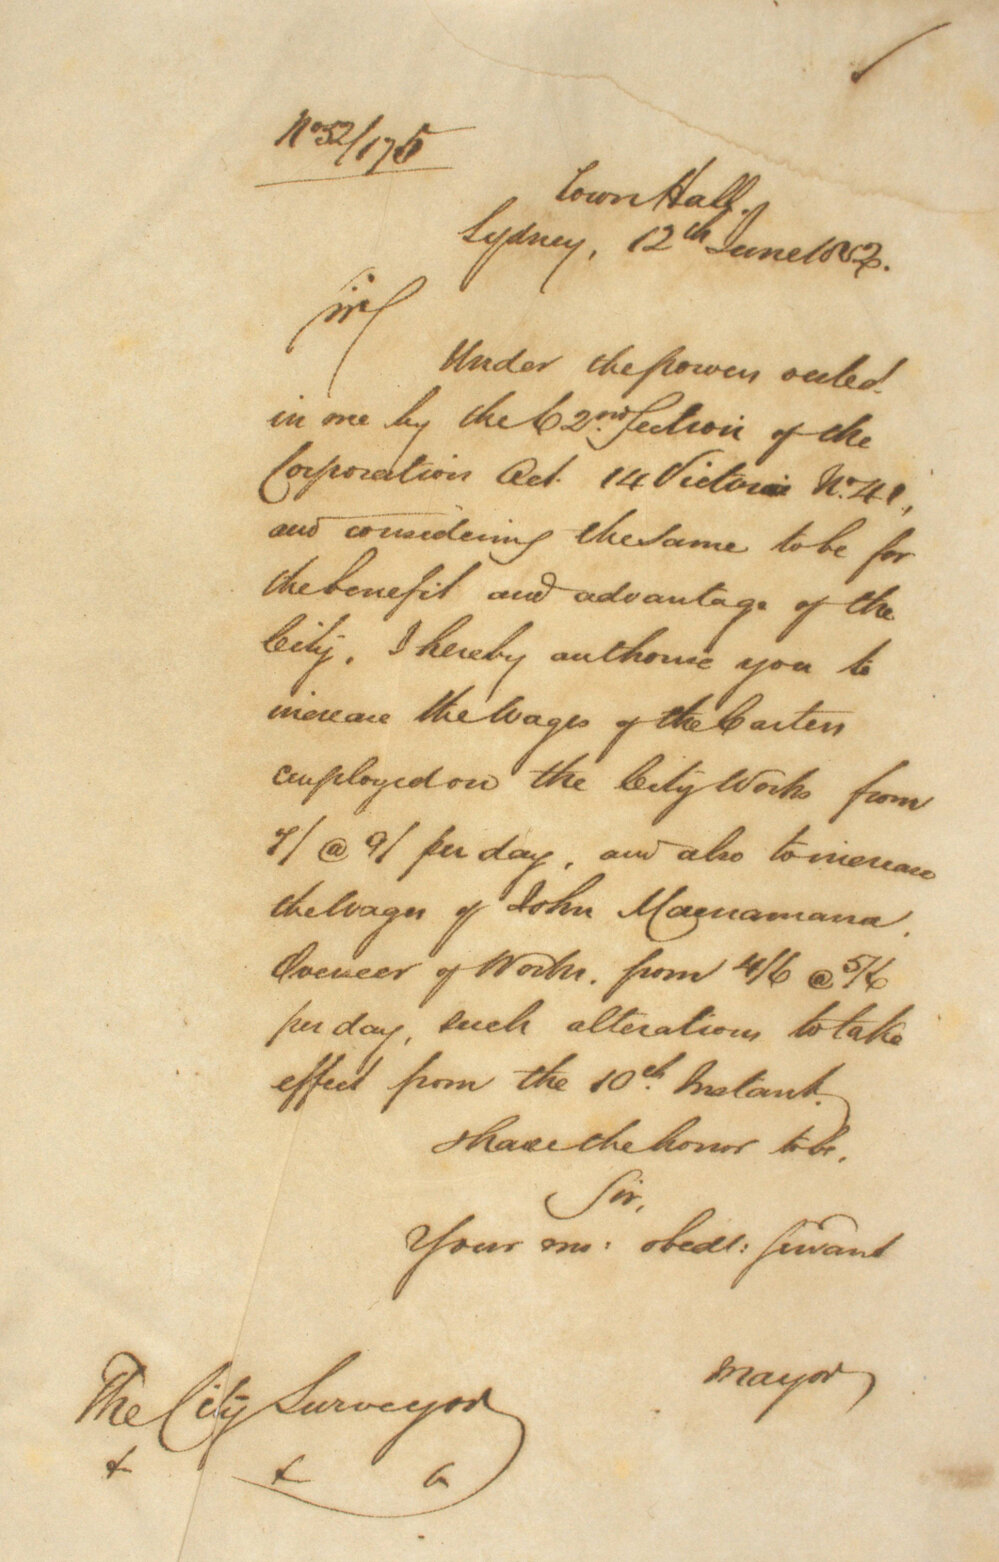 No 52/175
Town Hall,
Sydney, 12th June 1852.
Sir
Under the powers vested
in me by the 62nd Section of the
Corporation Act 14 Victoria No. 41,
and considering the same to be for
the benefit and advantage of the
City, I hereby authorise you to
increase the Wages of the Carters
employed on the City Works from
7/ @ 9/ per day, and also to increase
the Wages of John Macnamara,
Overseer of Works, from 4/6 @ 5/6
per day, such alterations to take
effect from the 10th Instant.
I have the honor to be,
Sir,
Your mo: obedt: Servant
Mayor
The City Surveyor